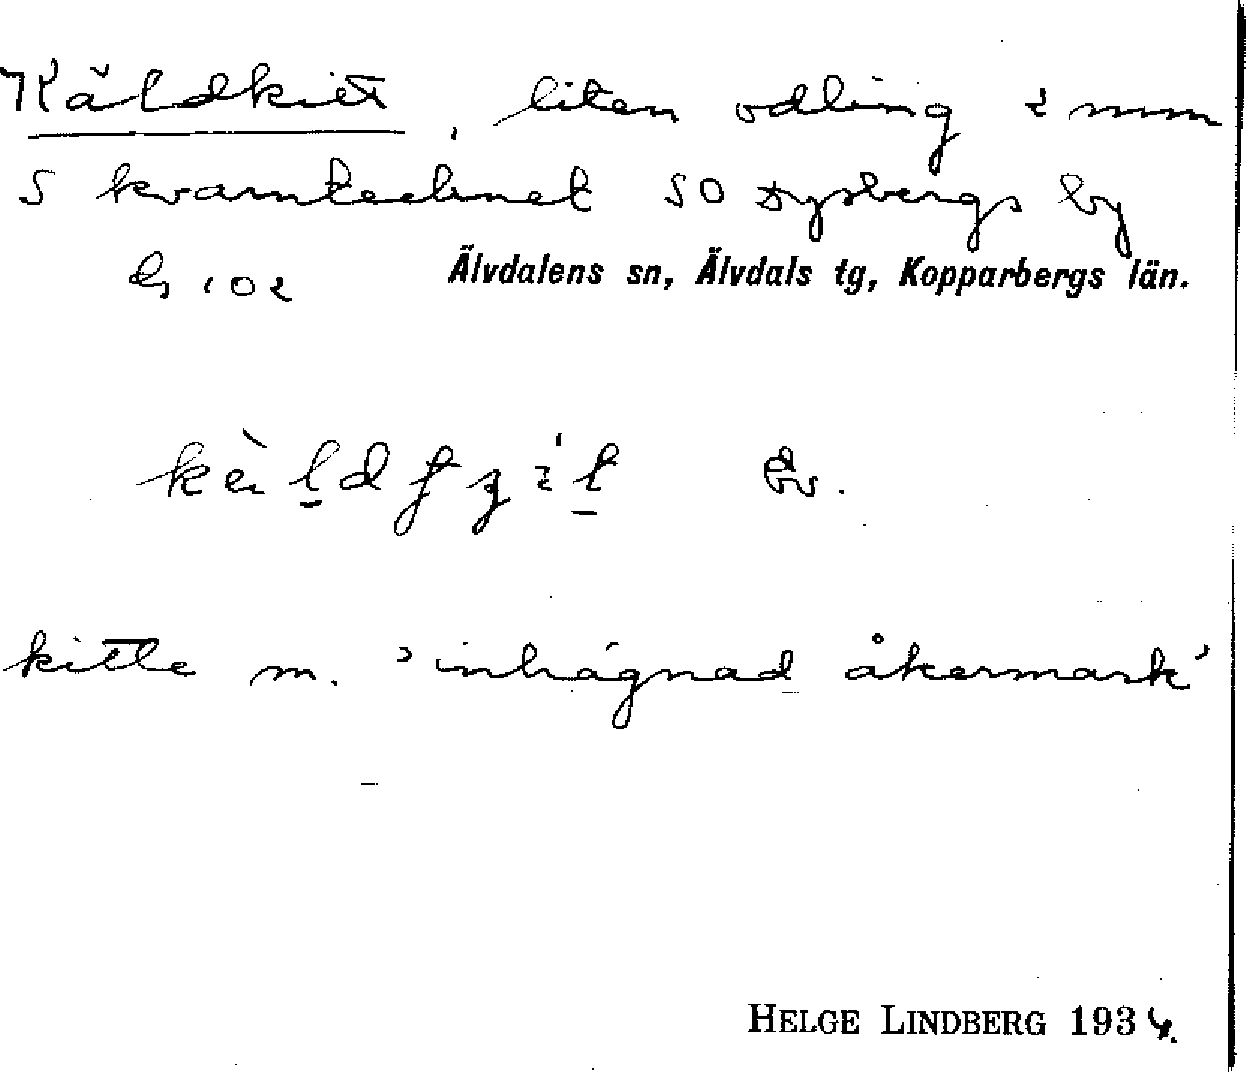 Käldkitt, liten odling 2 mm
S kvarntecknet SO Dysbergs by
102 Älvdalens sn, Älvdals tg, Kopparbergs län.
kitte m. 'inhägnad åkermark'
HELGE LINDBERG 1934.